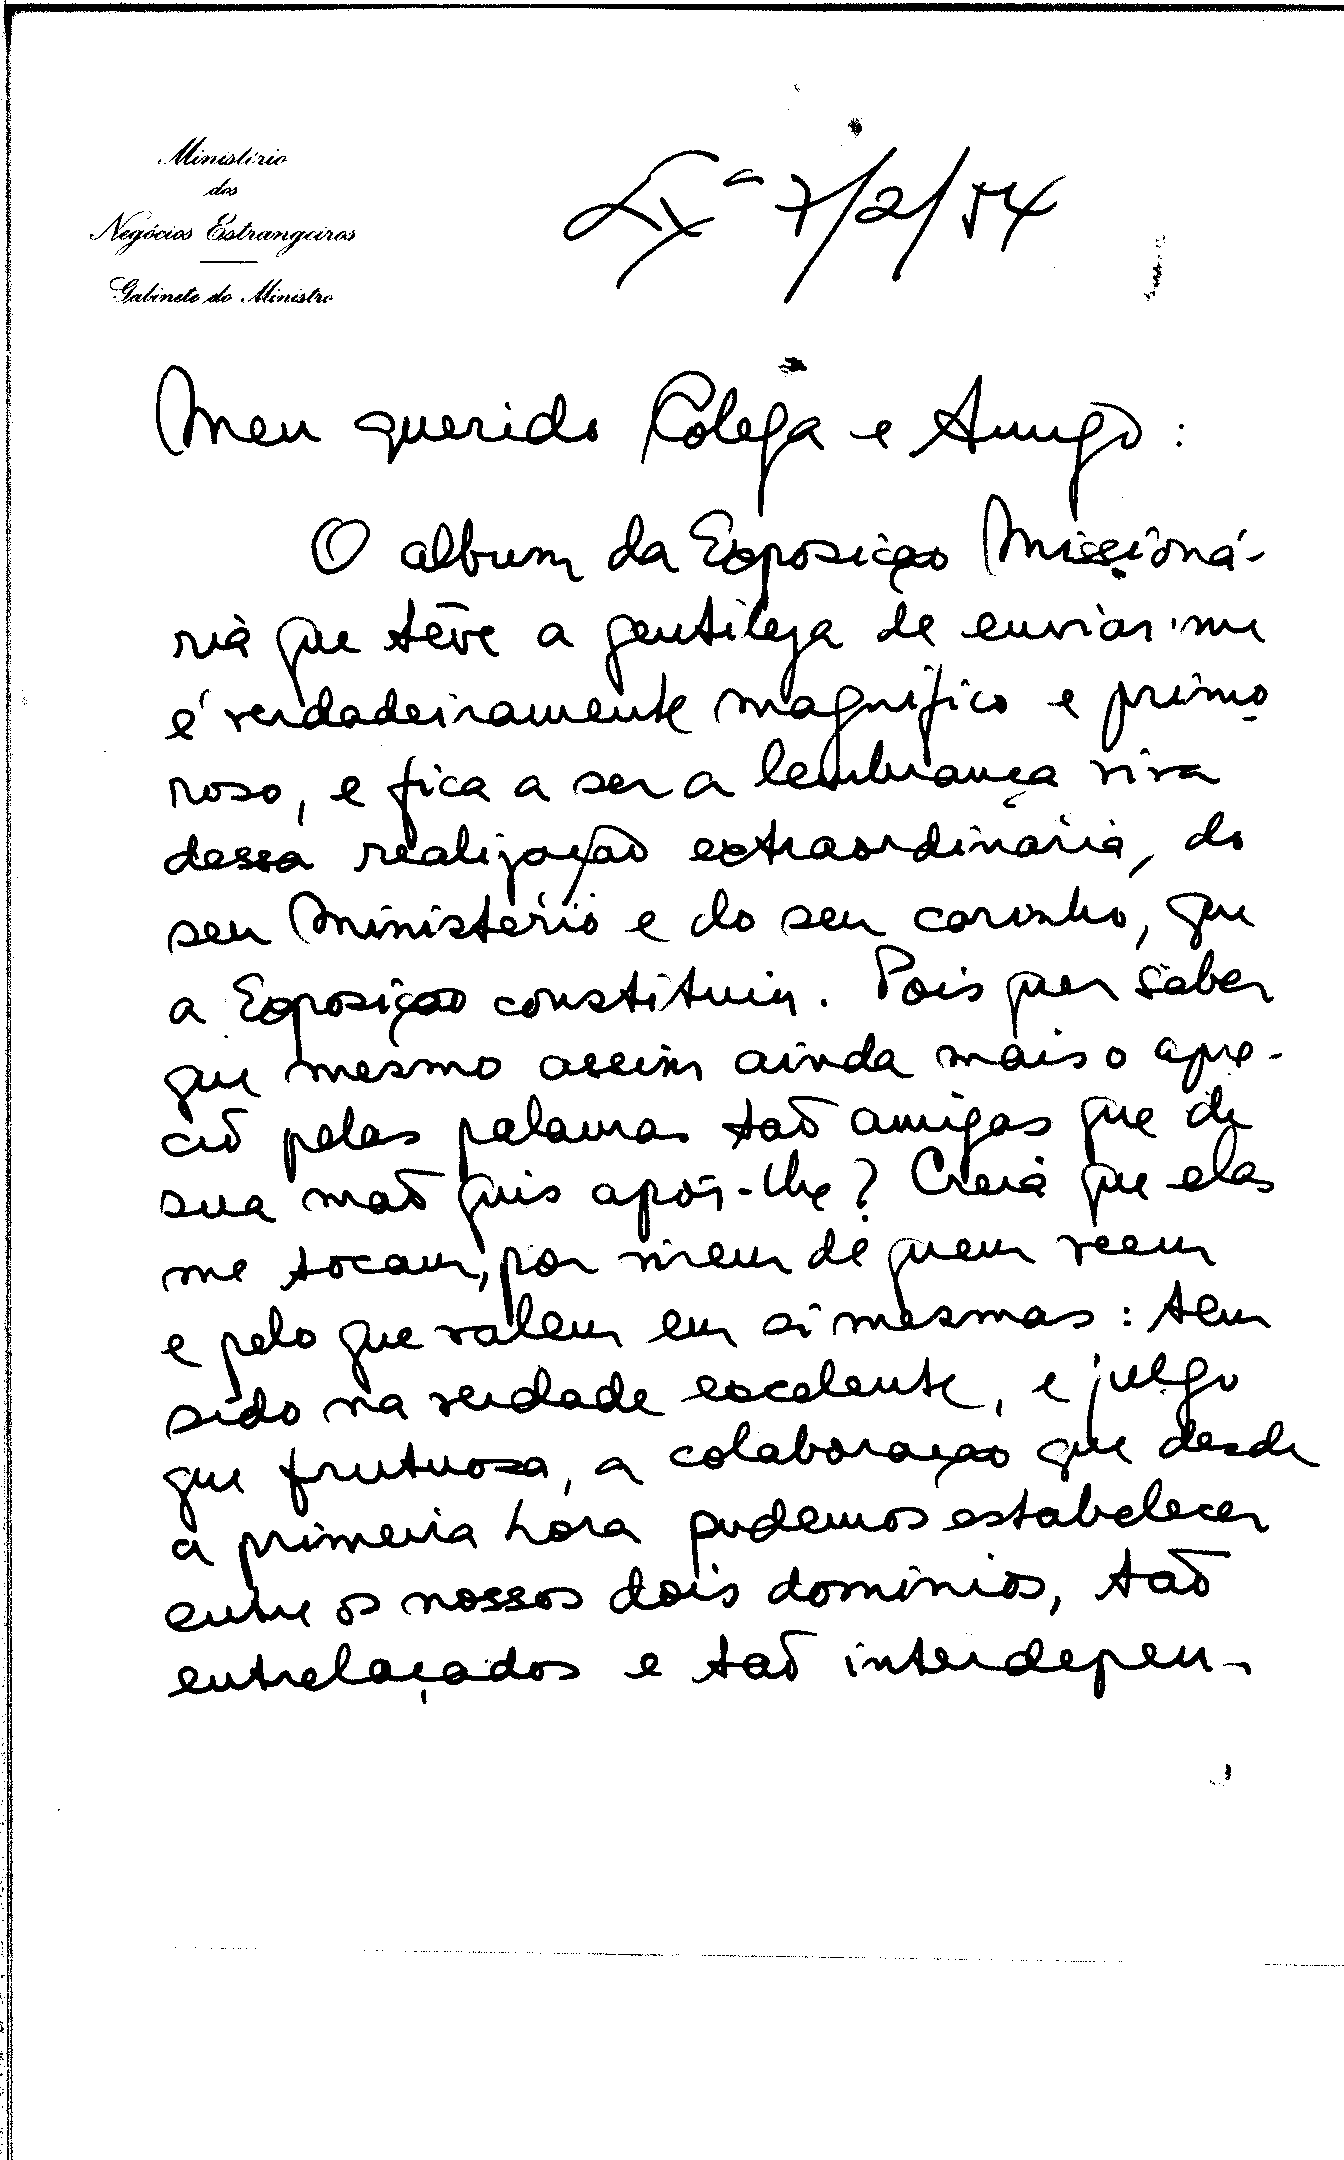 Ministério
dos
Negócios Estrangeiros
Gabinete do Ministro
Lxª 7/2/54
Meu querido Colega e Amigo:
O album da Exposição Missioná-
ria que têve a gentileza de enviar-me
é verdadeiramente magnífico e primo
roso, e fica a ser a lembrança viva
dessa realização extraordinária, do
seu Ministério e do seu carinho, que
a Exposição constituiu. Pois quer saber
que mesmo assim ainda mais o apre-
cio pelas palavras tão amigas que de
sua mão quis apôr-lhe? Creia que elas
me tocam, por virem de quem veem
e pelo que valem em si mesmas: tem
sido na verdade excelente, e julgo
que frutuosa, a colaboração que desde
a primeira hora pudemos estabelecer
entre os nossos dois domínios, tão
entrelaçados e tão interdepen-